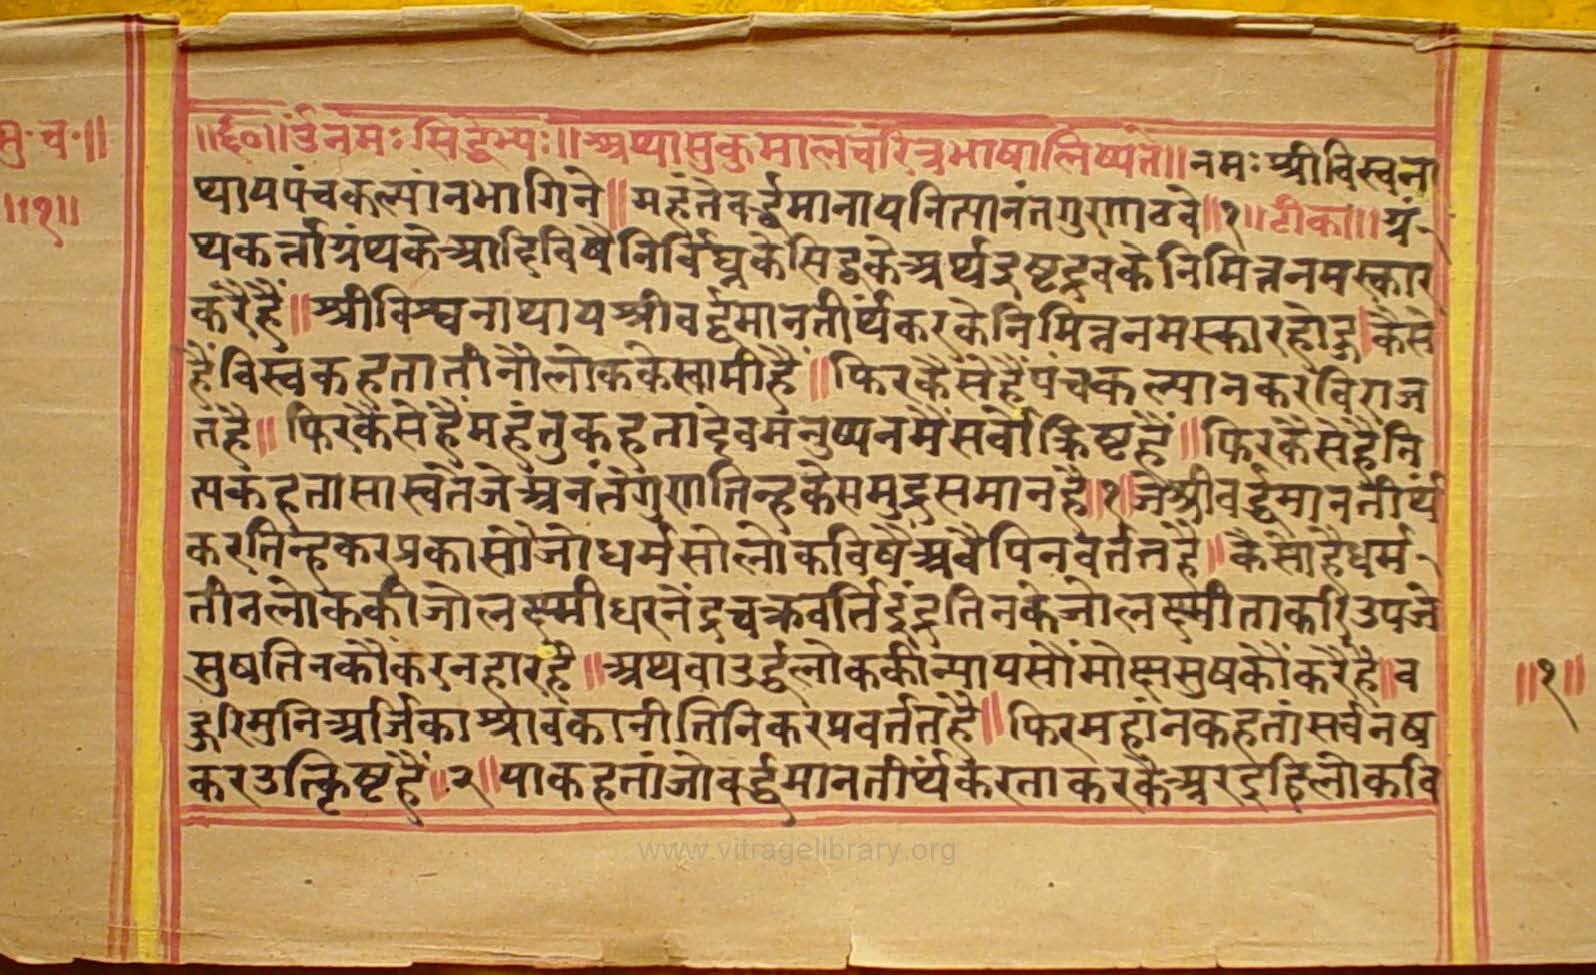 सु॰ च॰॥
॥१॥
॥६०॥ उंनमः सिद्धेभ्यः॥ अथासुकुमालचरित्रभाषालिष्यते॥ नमः श्रीविस्वना
थायपंचकल्यांनभागिने॥ महंतेवर्द्धमानायनित्यानंतगुणाववे॥१॥ टीका॥ ग्रं
थकर्त्ताग्रंथकेआदिविषैनिर्विघ्नकेसिद्धकेअर्थइष्टद्रवकेनिमित्तनमस्कार
करैहैं॥ श्रीविश्वनाथायश्रीवर्द्धमानतीर्थंकरकेनिमित्तनमस्कारहोऊ।कैसे
हैंविस्वकहतातीनौलोककेस्वामीहैं॥ फिरकैसेहैंपंचकल्यानकरविराज
तंहै॥ फिरकैसेहैंमहंतुकहतादेवमनुष्यनमैंसर्वोक्रिष्टहैं॥ फिरकैसेहैंनि
त्यकहतासास्वेतजेअनंतेगुणतिन्हकेसमुद्रसमानहै॥१॥जेश्रीवर्द्धमानतीर्थ
करतिन्हकरप्रकासौजोधर्मसोलोकविषैअवैपिनवर्ततहै॥ कैसोहैधर्म
तीनलोककीजोलक्ष्मीधरनेंद्रचक्रवर्तिइंद्रतिनकेजोलक्ष्मीताकरिउपजे
सुषतिनकौकरनहारहै॥ अथवाउर्द्धलोककीन्यायसौंमोक्षसुषकौंकरैहै॥व
ऊरिमुनिअर्जिकाश्रावकानीतिनिकरप्रवर्ततहै॥ फिरमहांनकहतांसर्वनष
करउत्क्रिष्टहैं॥२॥याकहतांजोवर्द्धमानतीर्थंकरताकरकेअरइहिलोकवि
॥१॥
www.vitragelibrary.org